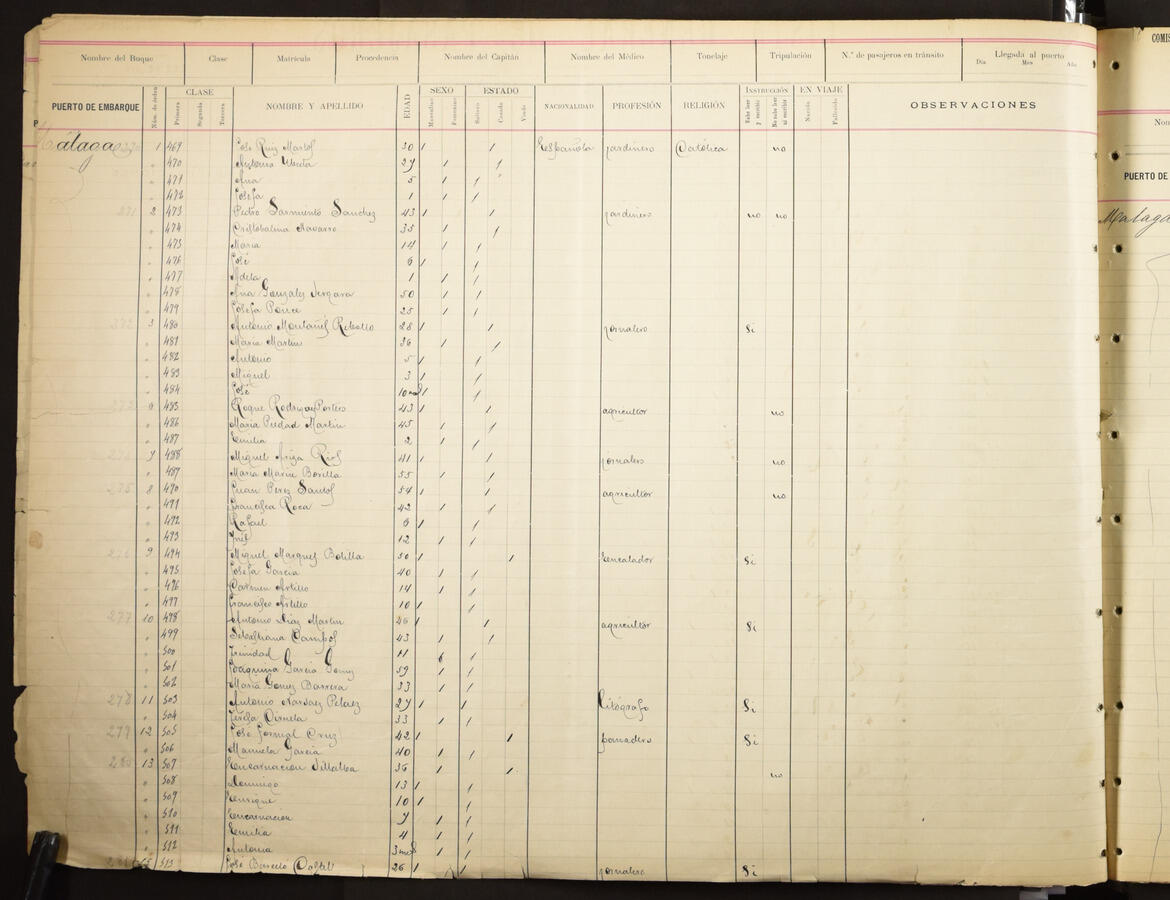 Nombre del Buque Clase Matrícula Procedencia Nombre del Capitán Nombre del Médico Tonelaje Tripulación N.º de pasajeros en tránsito Llegada al puerto
Día Mes Año
PUERTO DE EMBARQUE Núm. de orden CLASE Primera Segunda Tercera NOMBRE Y APELLIDO EDAD SEXO Masculino Femenino ESTADO Soltero Casado Viudo NACIONALIDAD PROFESIÓN RELIGIÓN INSTRUCCIÓN Sabe leer y escribir No sabe leer ni escribir EN VIAJE Nacido Fallecido OBSERVACIONES
Málaga 270 1 469 José Ruiz Martos 30 / / Española jardinero Católica no
" 470 Antonia 29 / /
" 471 Ana 5 / /
" 472 Josefa 1 / /
271 2 473 Pedro Sarmiento Sanchez 43 / / jardinero no no
" 474 Cristobalina Navarro 35 / /
" 475 Maria 14 / /
" 476 José 6 / /
" 477 Adela 1 / /
" 478 Ana Gonzalez Vergara 50 / /
" 479 Josefa Ponce 25 / /
272 3 480 Antonio Montañés Rebollo 28 / / jornalero Si
" 481 Maria Martin 36 / /
" 482 Antonio 5 / /
" 483 Miguel 3 / /
" 484 José 10 mes / /
273 485 Roque Rodriguez Portero 43 / / agricultor no
" 486 Maria Piedad Martin 45 / /
" 487 Emilia 2 / /
7 488 Miguel Ariza Rios 41 / / jornalero no
" 489 Maria Marin Bonilla 55 / /
275 8 490 Juan Perez Santos 54 / / agricultor no
" 491 Francisca Roca 42 / /
" 492 Rafael 9 / /
" 493 Inés 12 / /
276 9 494 Miguel Marquez Botilla 50 / / Encalador Si
" 495 Josefa Garcia 40 / /
" 496 Carmen Artillo 14 / /
" 497 Francisco Artillo 10 / /
277 10 498 Antonio Diaz Martin 46 / / agricultor Si
" 499 Sebastiana Campos 43 / /
" 500 Trinidad 11 / /
" 501 Joaquina Garcia Gomez 59 / /
" 502 Maria Gomez Barrera 33 / /
278 11 503 Antonio Narvaez Pelaez 27 / / Litógrafo Si
" 504 Teresa 33 / /
279 12 505 José Cruz 42 / / panadero Si
" 506 Manuela Garcia 40 / /
280 13 507 Encarnacion Villalba 36 / / no
" 508 Domingo 13 / /
" 509 Enrique 10 / /
" 510 Encarnacion 7 / /
" 511 Emilia 4 / /
" 512 Antonia 3 mes / /
513 José Barceló 26 / / jornalero Si
COMIS
Nom
PUERTO DE
Malaga